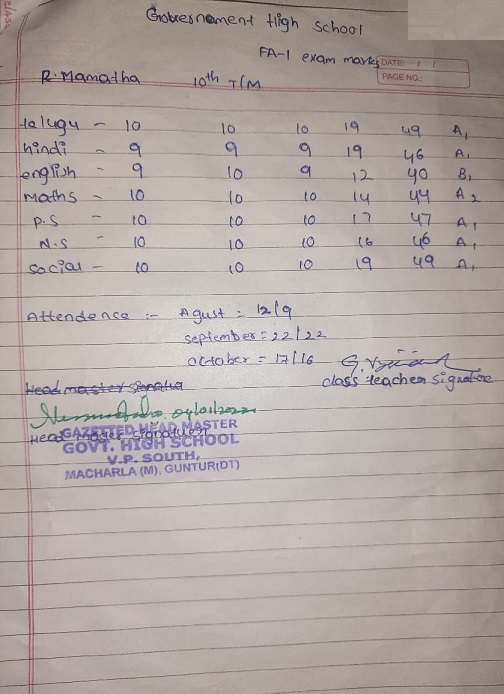 class
Gobrernament High school
FA-1 exam marks
DATE: / /
PAGE NO.:
R.Mamatha 10th T/M
talugu - 10 10 10 19 49 A1
hindi - 9 9 9 19 46 A1
english - 9 10 9 12 40 B1
Maths - 10 10 10 14 44 A2
P.S - 10 10 10 17 47 A1
N.S - 10 10 10 16 46 A1
social - 10 10 10 19 49 A1
Attendence :- Agust = 12/9
september = 22/22
october = 17/16
class teacher signature
Head master
GAZETTED HEAD MASTER
Head
GOVT. HIGH SCHOOL
V.P. SOUTH,
MACHARLA (M), GUNTUR(DT)